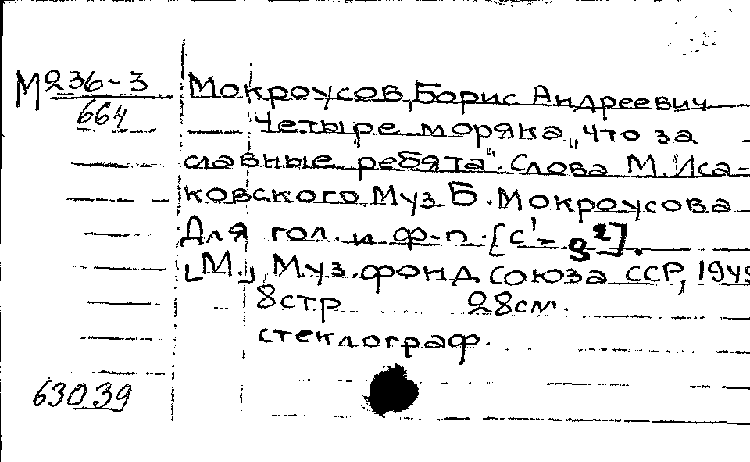 М 236-3
664
Мокроусов, Борис Андреевич
Четыре моряка „Что за
славные ребята". Слова М. Иса-
ковского Муз Б. Мокроусова
Для гол. и ф-п. [с¹ - g²].
[М.], Муз. фонд союза ССР,
8 стр 28 см.
стеклограф.
63039